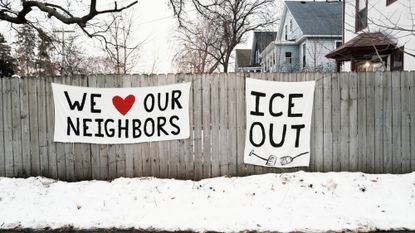 WE ❤ OUR
NEIGHBORS
ICE
OUT